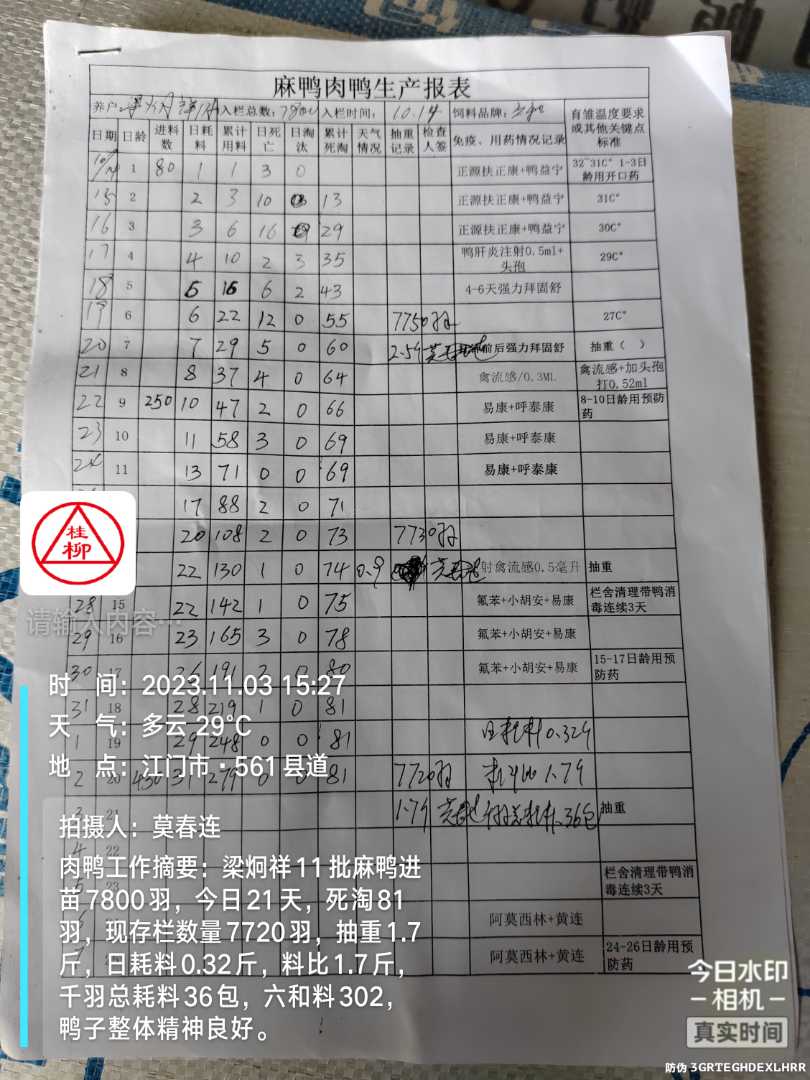 麻鸭肉鸭生产报表
养户 入栏总数: 7800 入栏时间: 10.14 饲料品牌: 育雏温度要求或其他关键点标准
日期 日龄 进料数 日耗料 累计用料 日死亡 日淘汰 累计死淘 天气情况 抽重记录 检查人签 免疫、用药情况记录
10/14 1 80 1 1 3 0 正源扶正康+鸭益宁 32~31C° 1-3日龄用开口药
15 2 2 3 10 0 13 正源扶正康+鸭益宁 31C°
16 3 3 6 16 29 正源扶正康+鸭益宁 30C°
17 4 4 10 2 3 35 鸭肝炎注射0.5ml+头孢 29C°
18 5 5 16 6 2 43 4-6天强力拜固舒
19 6 6 22 12 0 55 7750羽 27C°
20 7 7 29 5 0 60 2.5两 前后强力拜固舒 抽重（ ）
21 8 8 37 4 0 64 禽流感/0.3ML 禽流感+加头孢打0.52ml
22 9 250 10 47 2 0 66 易康+呼泰康 8-10日龄用预防药
23 10 11 58 3 0 69 易康+呼泰康
24 11 13 71 0 0 69 易康+呼泰康
17 88 2 0 71
20 108 2 0 73 7730羽
22 130 1 0 74 0.9 射禽流感0.5毫升 抽重
28 15 22 142 1 0 75 氟苯+小胡安+易康 栏舍清理带鸭消毒连续3天
29 16 23 165 3 0 78 氟苯+小胡安+易康
30 17 26 191 2 0 80 氟苯+小胡安+易康 15-17日龄用预防药
31 18 28 219 1 0 81
1 19 29 248 0 0 81 日耗料0.32斤
2 20 450 31 279 0 0 81 7720羽 料比1.7斤
3 21 1.7斤 36包 抽重
4 22
5 23 栏舍清理带鸭消毒连续3天
阿莫西林+黄连
阿莫西林+黄连 24-26日龄用预防药
桂
柳
请输入内容…
时 间：2023.11.03 15:27
天 气：多云 29℃
地 点：江门市·561县道
拍摄人：莫春连
肉鸭工作摘要：梁炯祥11批麻鸭进
苗7800羽，今日21天，死淘81
羽，现存栏数量7720羽，抽重1.7
斤，日耗料0.32斤，料比1.7斤，
千羽总耗料36包，六和料302，
鸭子整体精神良好。
今日水印
相机
真实时间
防伪 3GRTEGHDEXLHRR